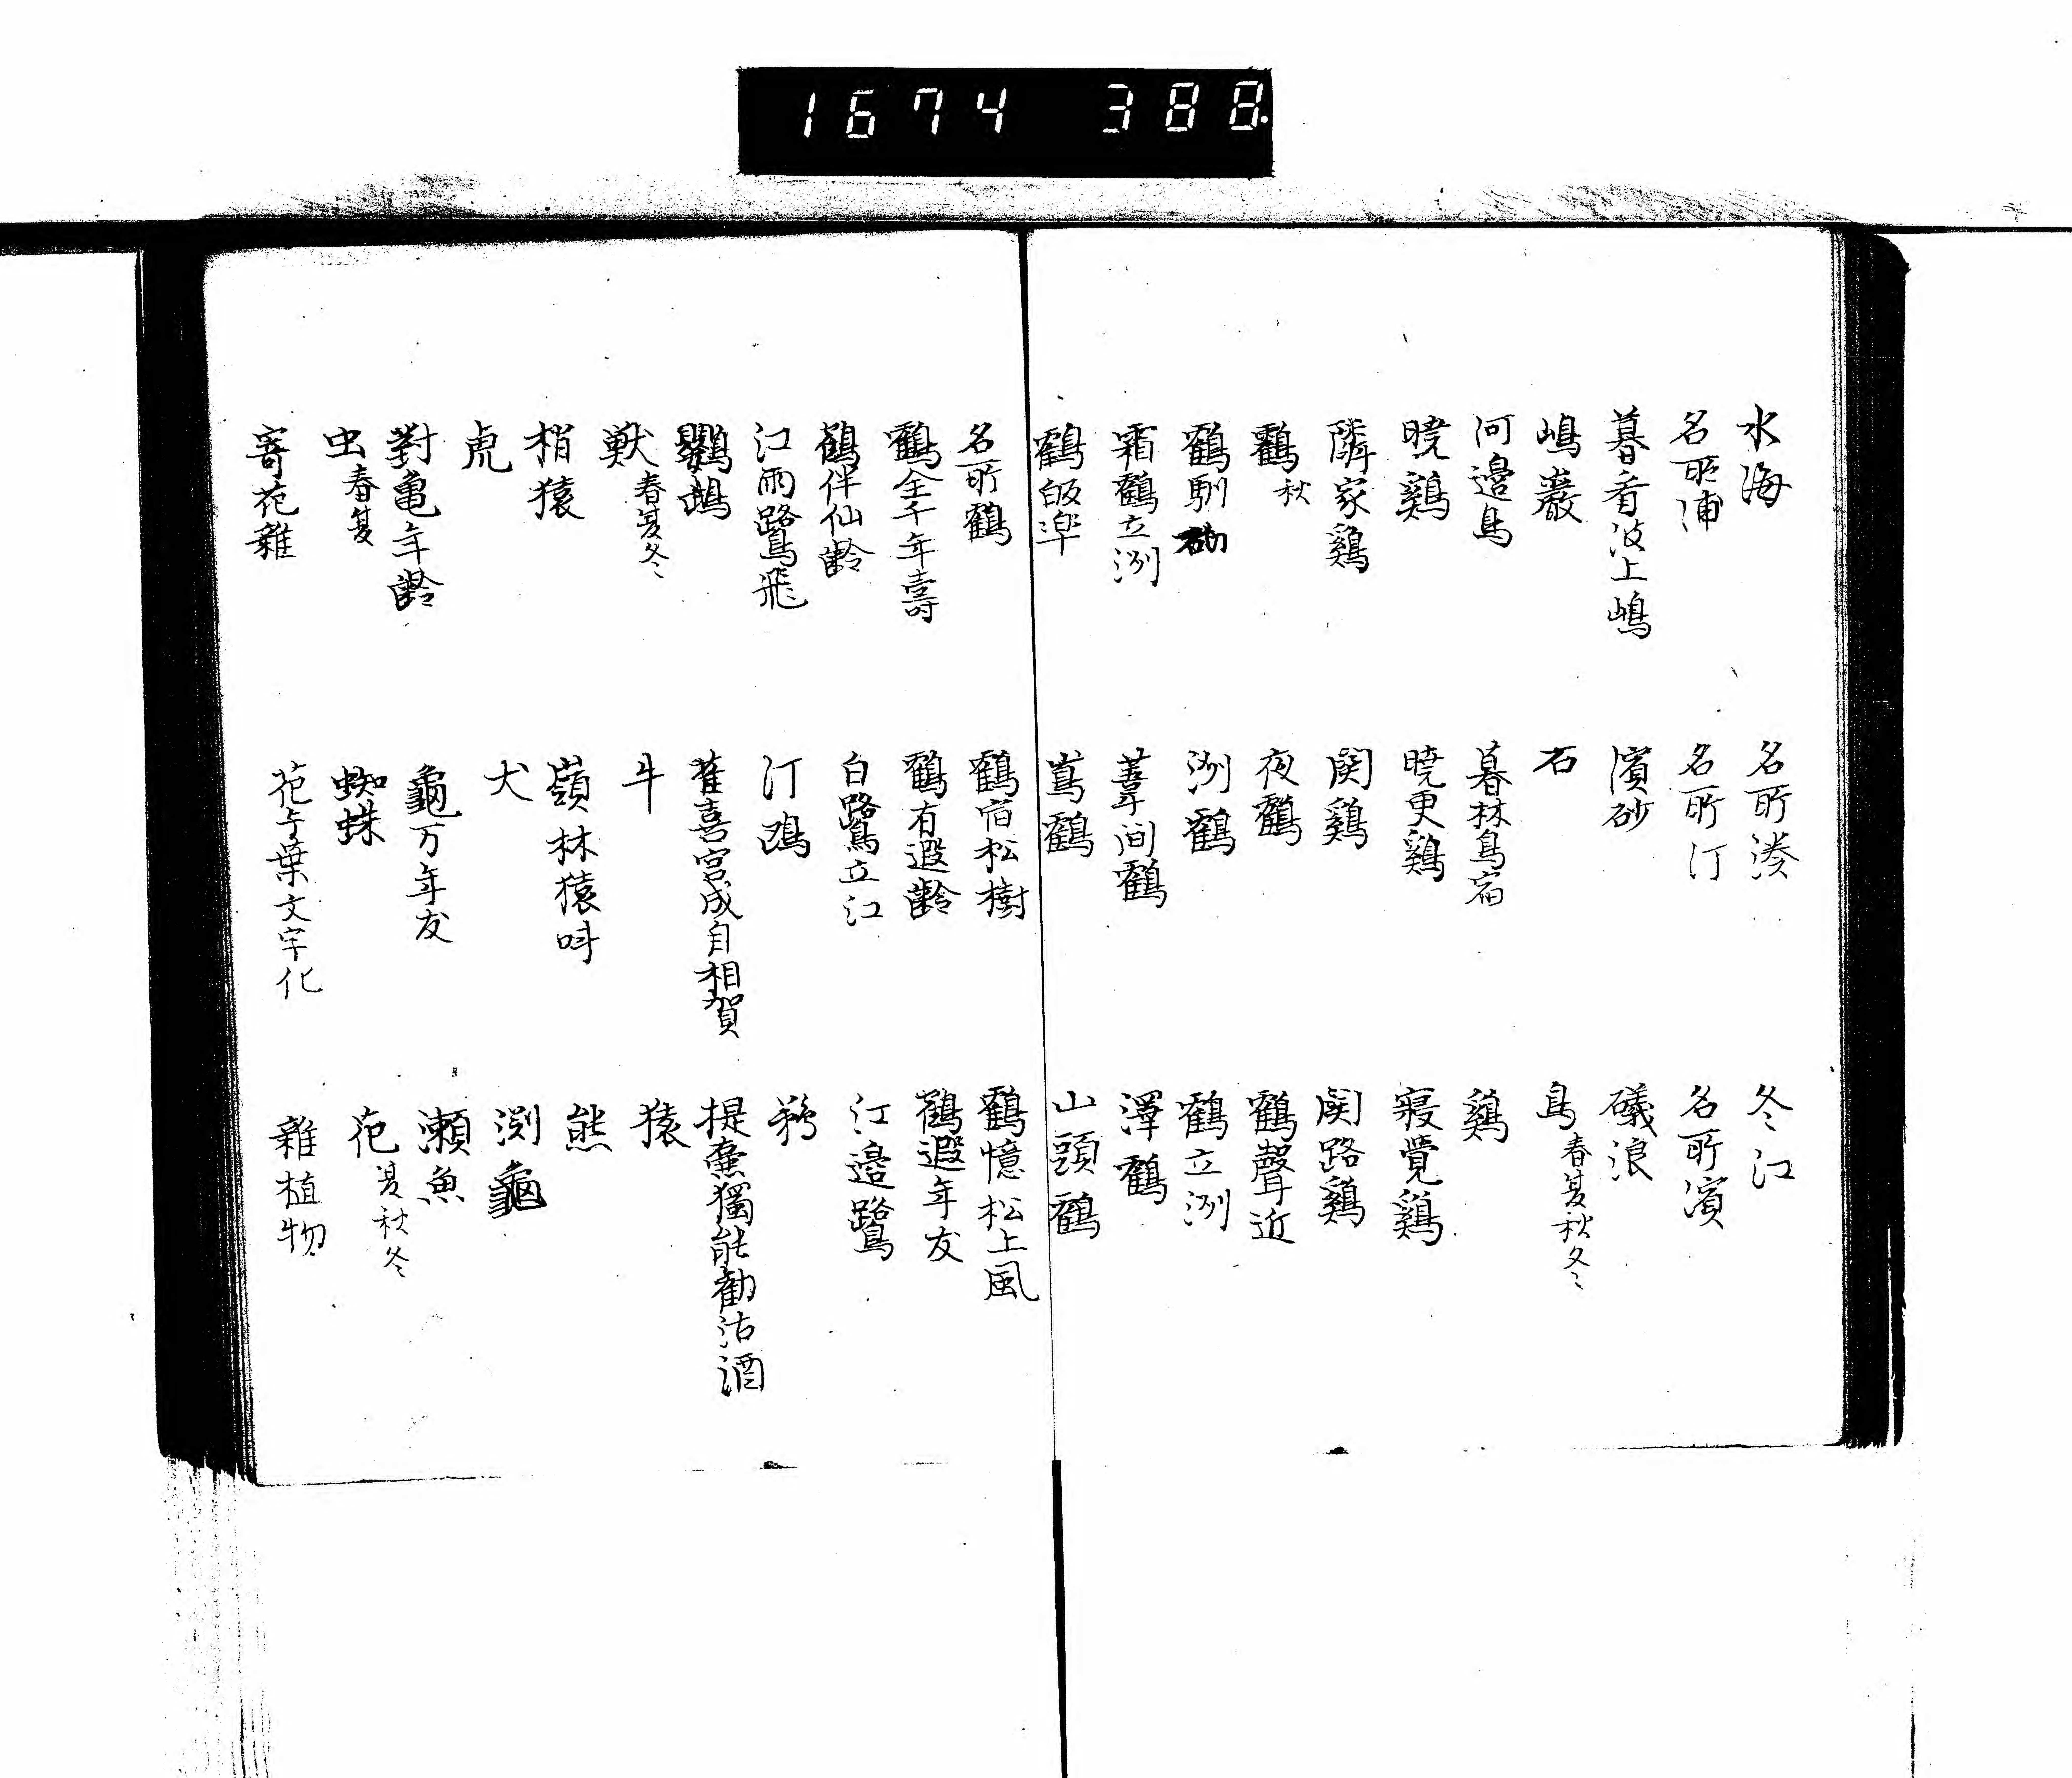 1674 388
水海 名所湊 冬江
名所浦 名所汀 名所濱
暮看波上嶋 濱砂 礒浪
嶋巌 石 鳥春夏秋冬
河邉鳥 暮林鳥宿 鷄
暁鷄 暁更鷄 寝覺鷄
隣家鷄 関鷄 関路鷄
鶴秋 夜鶴 鶴聲近
鶴馴砌 洲鶴 鶴立洲
霜鶴立洲 葦間鶴 澤鶴
鶴皈 嶌鶴 山頭鶴
名所鶴 鶴宿松樹 鶴憶松上風
鶴全千年壽 鶴有遐齢 鶴遐年友
鶴伴仙齢 白鷺立江 江邉鷺
江雨鷺飛 汀鴎
鸚鵡 雀喜宮成自相賀 提壷獨能勧沽酒
獣春夏冬 牛 猿
梢猿 嶺林猿叫 熊
虎 犬 渕龜
對亀年齢 龜万年友 瀬魚
虫春夏 蜘蛛 花夏秋冬
寄花雜 花与葉文字化 雜植物